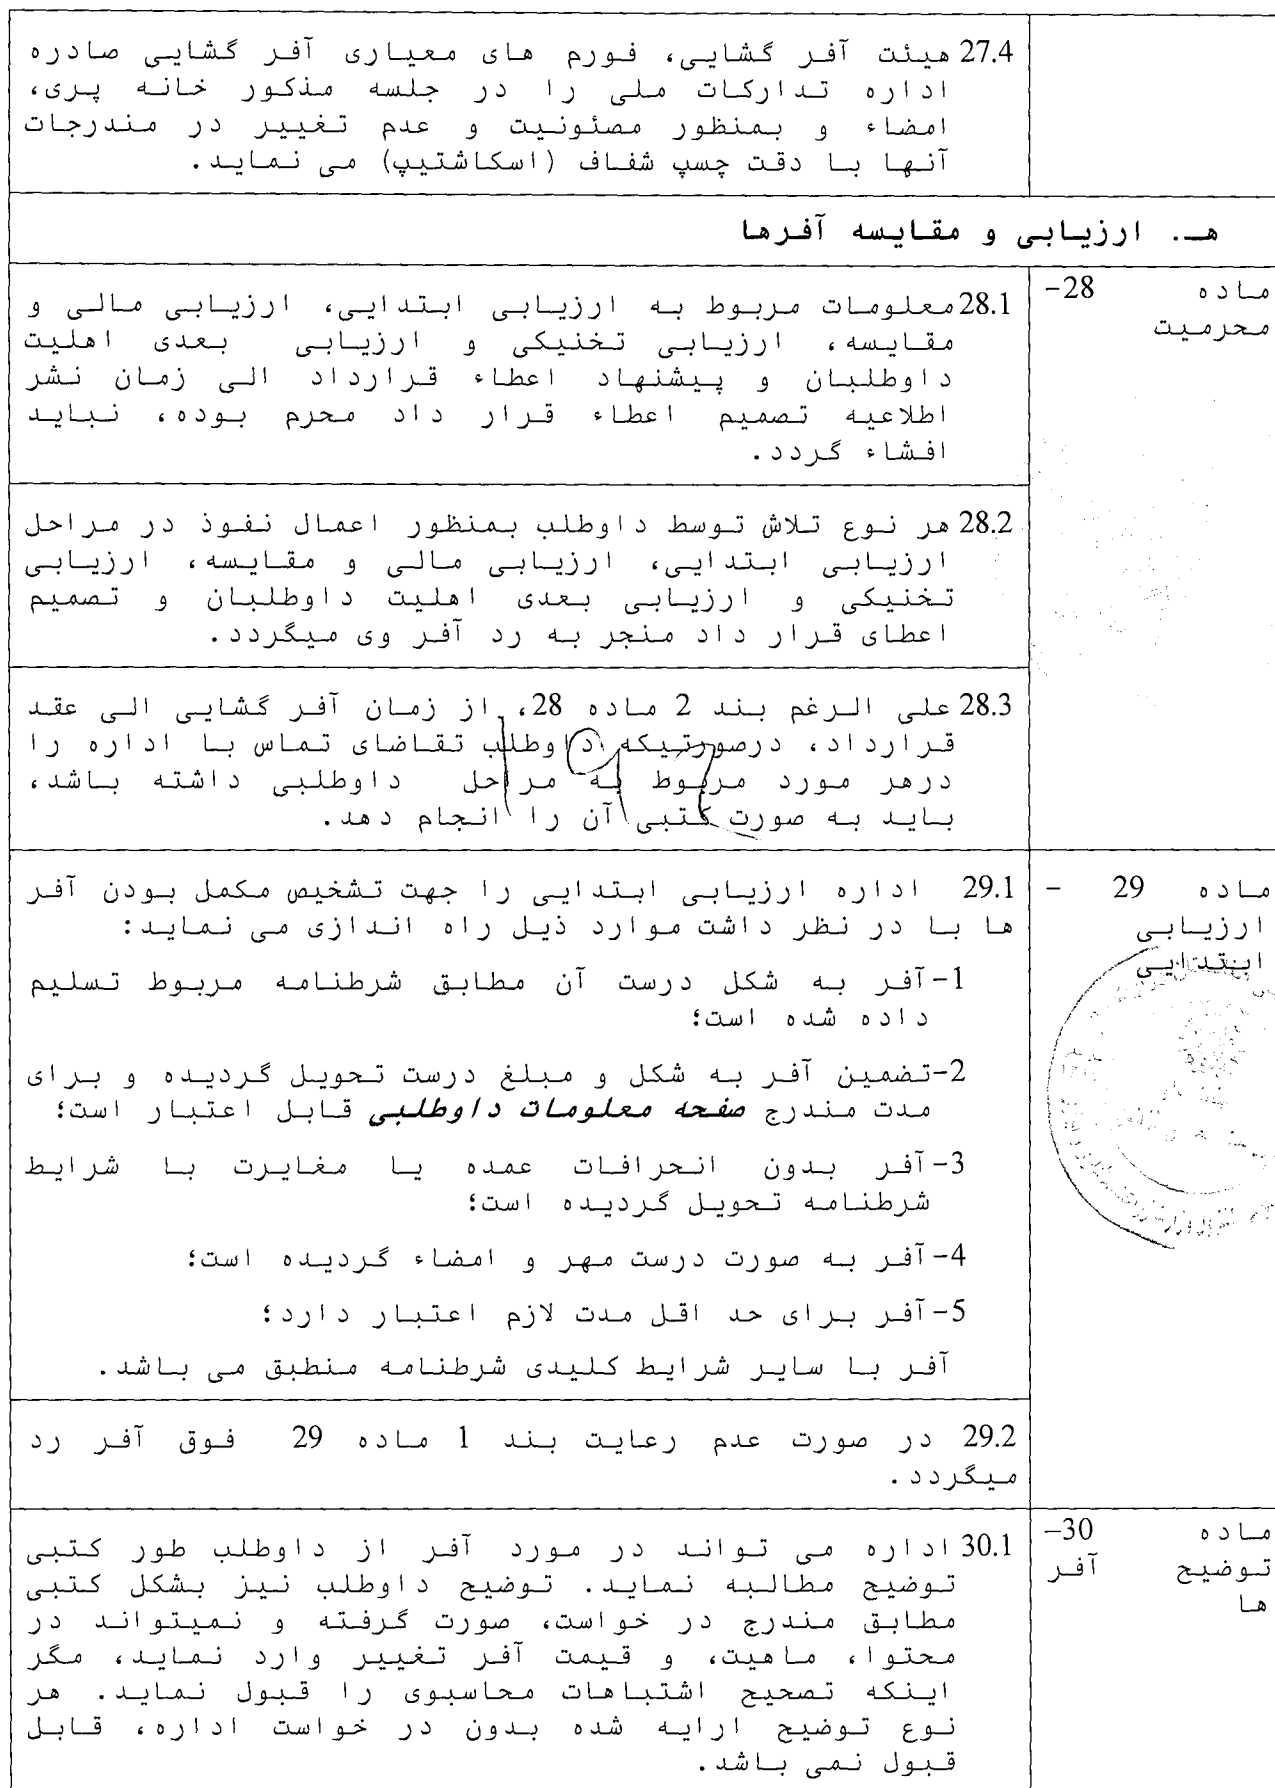 27.4 هیئت آفر گشایی، فورم های معیاری آفر گشایی صادره
اداره تدارکات ملی را در جلسه مذکور خانه پری،
امضاء و بمنظور مصئونیت و عدم تغییر در مندرجات
آنها با دقت چسپ شفاف (اسکاشتیپ) می نماید.
هـ. ارزیابی و مقایسه آفرها
ماده 28-
محرمیت
28.1 معلومات مربوط به ارزیابی ابتدایی، ارزیابی مالی و
مقایسه، ارزیابی تخنیکی و ارزیابی بعدی اهلیت
داوطلبان و پیشنهاد اعطاء قرارداد الی زمان نشر
اطلاعیه تصمیم اعطاء قرار داد محرم بوده، نباید
افشاء گردد.
28.2 هر نوع تلاش توسط داوطلب بمنظور اعمال نفوذ در مراحل
ارزیابی ابتدایی، ارزیابی مالی و مقایسه، ارزیابی
تخنیکی و ارزیابی بعدی اهلیت داوطلبان و تصمیم
اعطای قرار داد منجر به رد آفر وی میگردد.
28.3 علی الرغم بند 2 ماده 28، از زمان آفر گشایی الی عقد
قرارداد، درصورتیکه داوطلب تقاضای تماس با اداره را
درهر مورد مربوط به مراحل داوطلبی داشته باشد،
باید به صورت کتبی آن را انجام دهد.
ماده 29 -
ارزیابی
ابتدایی
29.1 اداره ارزیابی ابتدایی را جهت تشخیص مکمل بودن آفر
ها با در نظر داشت موارد ذیل راه اندازی می نماید:
1- آفر به شکل درست آن مطابق شرطنامه مربوط تسلیم
داده شده است؛
2- تضمین آفر به شکل و مبلغ درست تحویل گردیده و برای
مدت مندرج صفحه معلومات داوطلبی قابل اعتبار است؛
3- آفر بدون انحرافات عمده یا مغایرت با شرایط
شرطنامه تحویل گردیده است؛
4- آفر به صورت درست مهر و امضاء گردیده است؛
5- آفر برای حد اقل مدت لازم اعتبار دارد؛
آفر با سایر شرایط کلیدی شرطنامه منطبق می باشد.
29.2 در صورت عدم رعایت بند 1 ماده 29 فوق آفر رد
میگردد.
ماده 30-
توضیح آفر
ها
30.1 اداره می تواند در مورد آفر از داوطلب طور کتبی
توضیح مطالبه نماید. توضیح داوطلب نیز بشکل کتبی
مطابق مندرج در خواست، صورت گرفته و نمیتواند در
محتوا، ماهیت، و قیمت آفر تغییر وارد نماید، مگر
اینکه تصحیح اشتباهات محاسبوی را قبول نماید. هر
نوع توضیح ارایه شده بدون در خواست اداره، قابل
قبول نمی باشد.